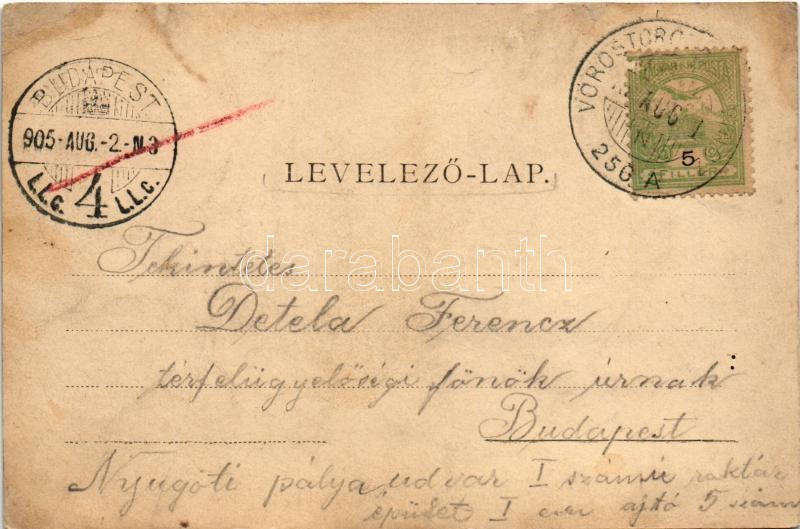 BUDAPEST
905-AUG.-2.-N3
L.L.C. 4 L.L.C.
VÖRÖSTORO
AUG 1
256 A
MAGYAR KIR. POSTA
5
FILLÉR
LEVELEZŐ-LAP.
darabanth
Tekintetes
Detela Ferencz
térfelügyelőségi főnök úrnak
Budapest
Nyugoti pálya udvar I számú raktár
épület I em ajtó 5 szám